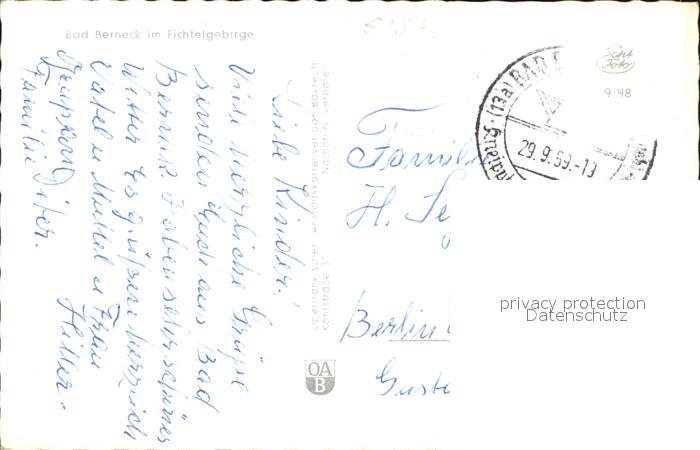 Bad Berneck im Fichtelgebirge
Liebe Kinder!
Viele herzliche Grüße
senden Euch aus Bad
Berneck. Haben sehr schönes
Wetter. Es grüßen herzlich
Vatel u Muttel u Frau
Hiller.
Familie
Oberfränkischer Ansichtskartenverlag Bayreuth
Kantstraße 51 Nachdruck verboten
OA
B
Familie
H. Se
Berlin
Guste
(13a) BAD
29.9.69.-13
Echt
Foto
9/98
privacy protection
Datenschutz